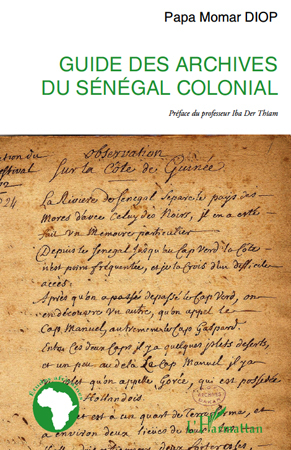 Papa Momar DIOP
GUIDE DES ARCHIVES
DU SÉNÉGAL COLONIAL
Préface du professeur Iba Der Thiam
observation
Sur la Côte de Guinée
La Riviere de Senegal separe le pays des
Mores d'avec Celuy des Noirs, il en a esté
fait un Memoire particulier
Depuis le Senegal jusqu'au Cap Verd la Côte
n'est point frequentée, et je la Crois d'un difficile
accés.
Après qu'on a passé depassé le Cap Verd, on
en découvre un autre, qu'on appel le
Cap Manuel, autrement le Cap Gaspard.
Entre Ces deux Caps il y a quelques jslets deserts,
et un peu au delà le Cap Manuel il y a
qu'on appelle Gorée, qui est possible
Hollandois.
est a un quart de Terre ferme, et
a environ deux lieues de tour
L'Harmattan